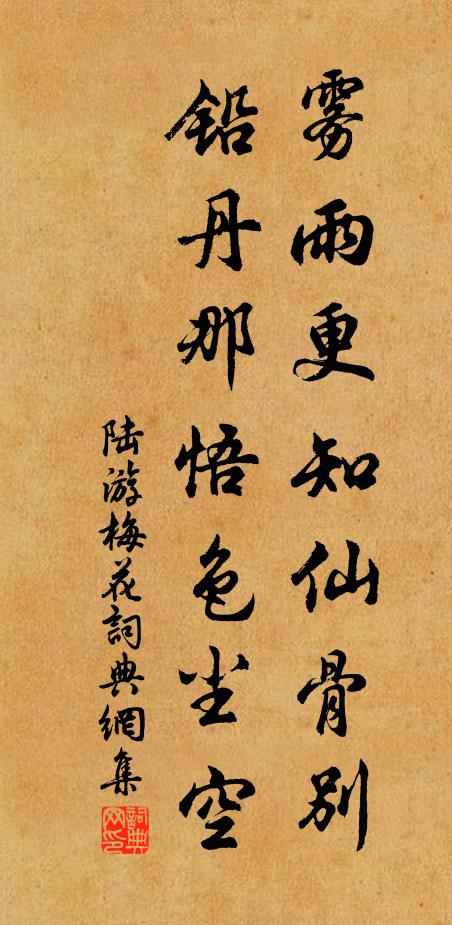 雾雨更知仙骨别
铅丹那悟色尘空
陆游梅花詞典網集
詞典
网印